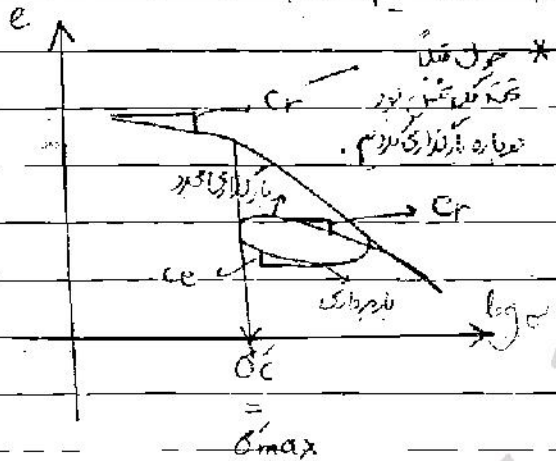 e
* چون قبلاً
Cr
تحت تنش بود
دوباره بارگذاری کردیم.
بارگذاری مجدد
Cr
Ce
باربرداری
log σ
σ́c
=
σ́max